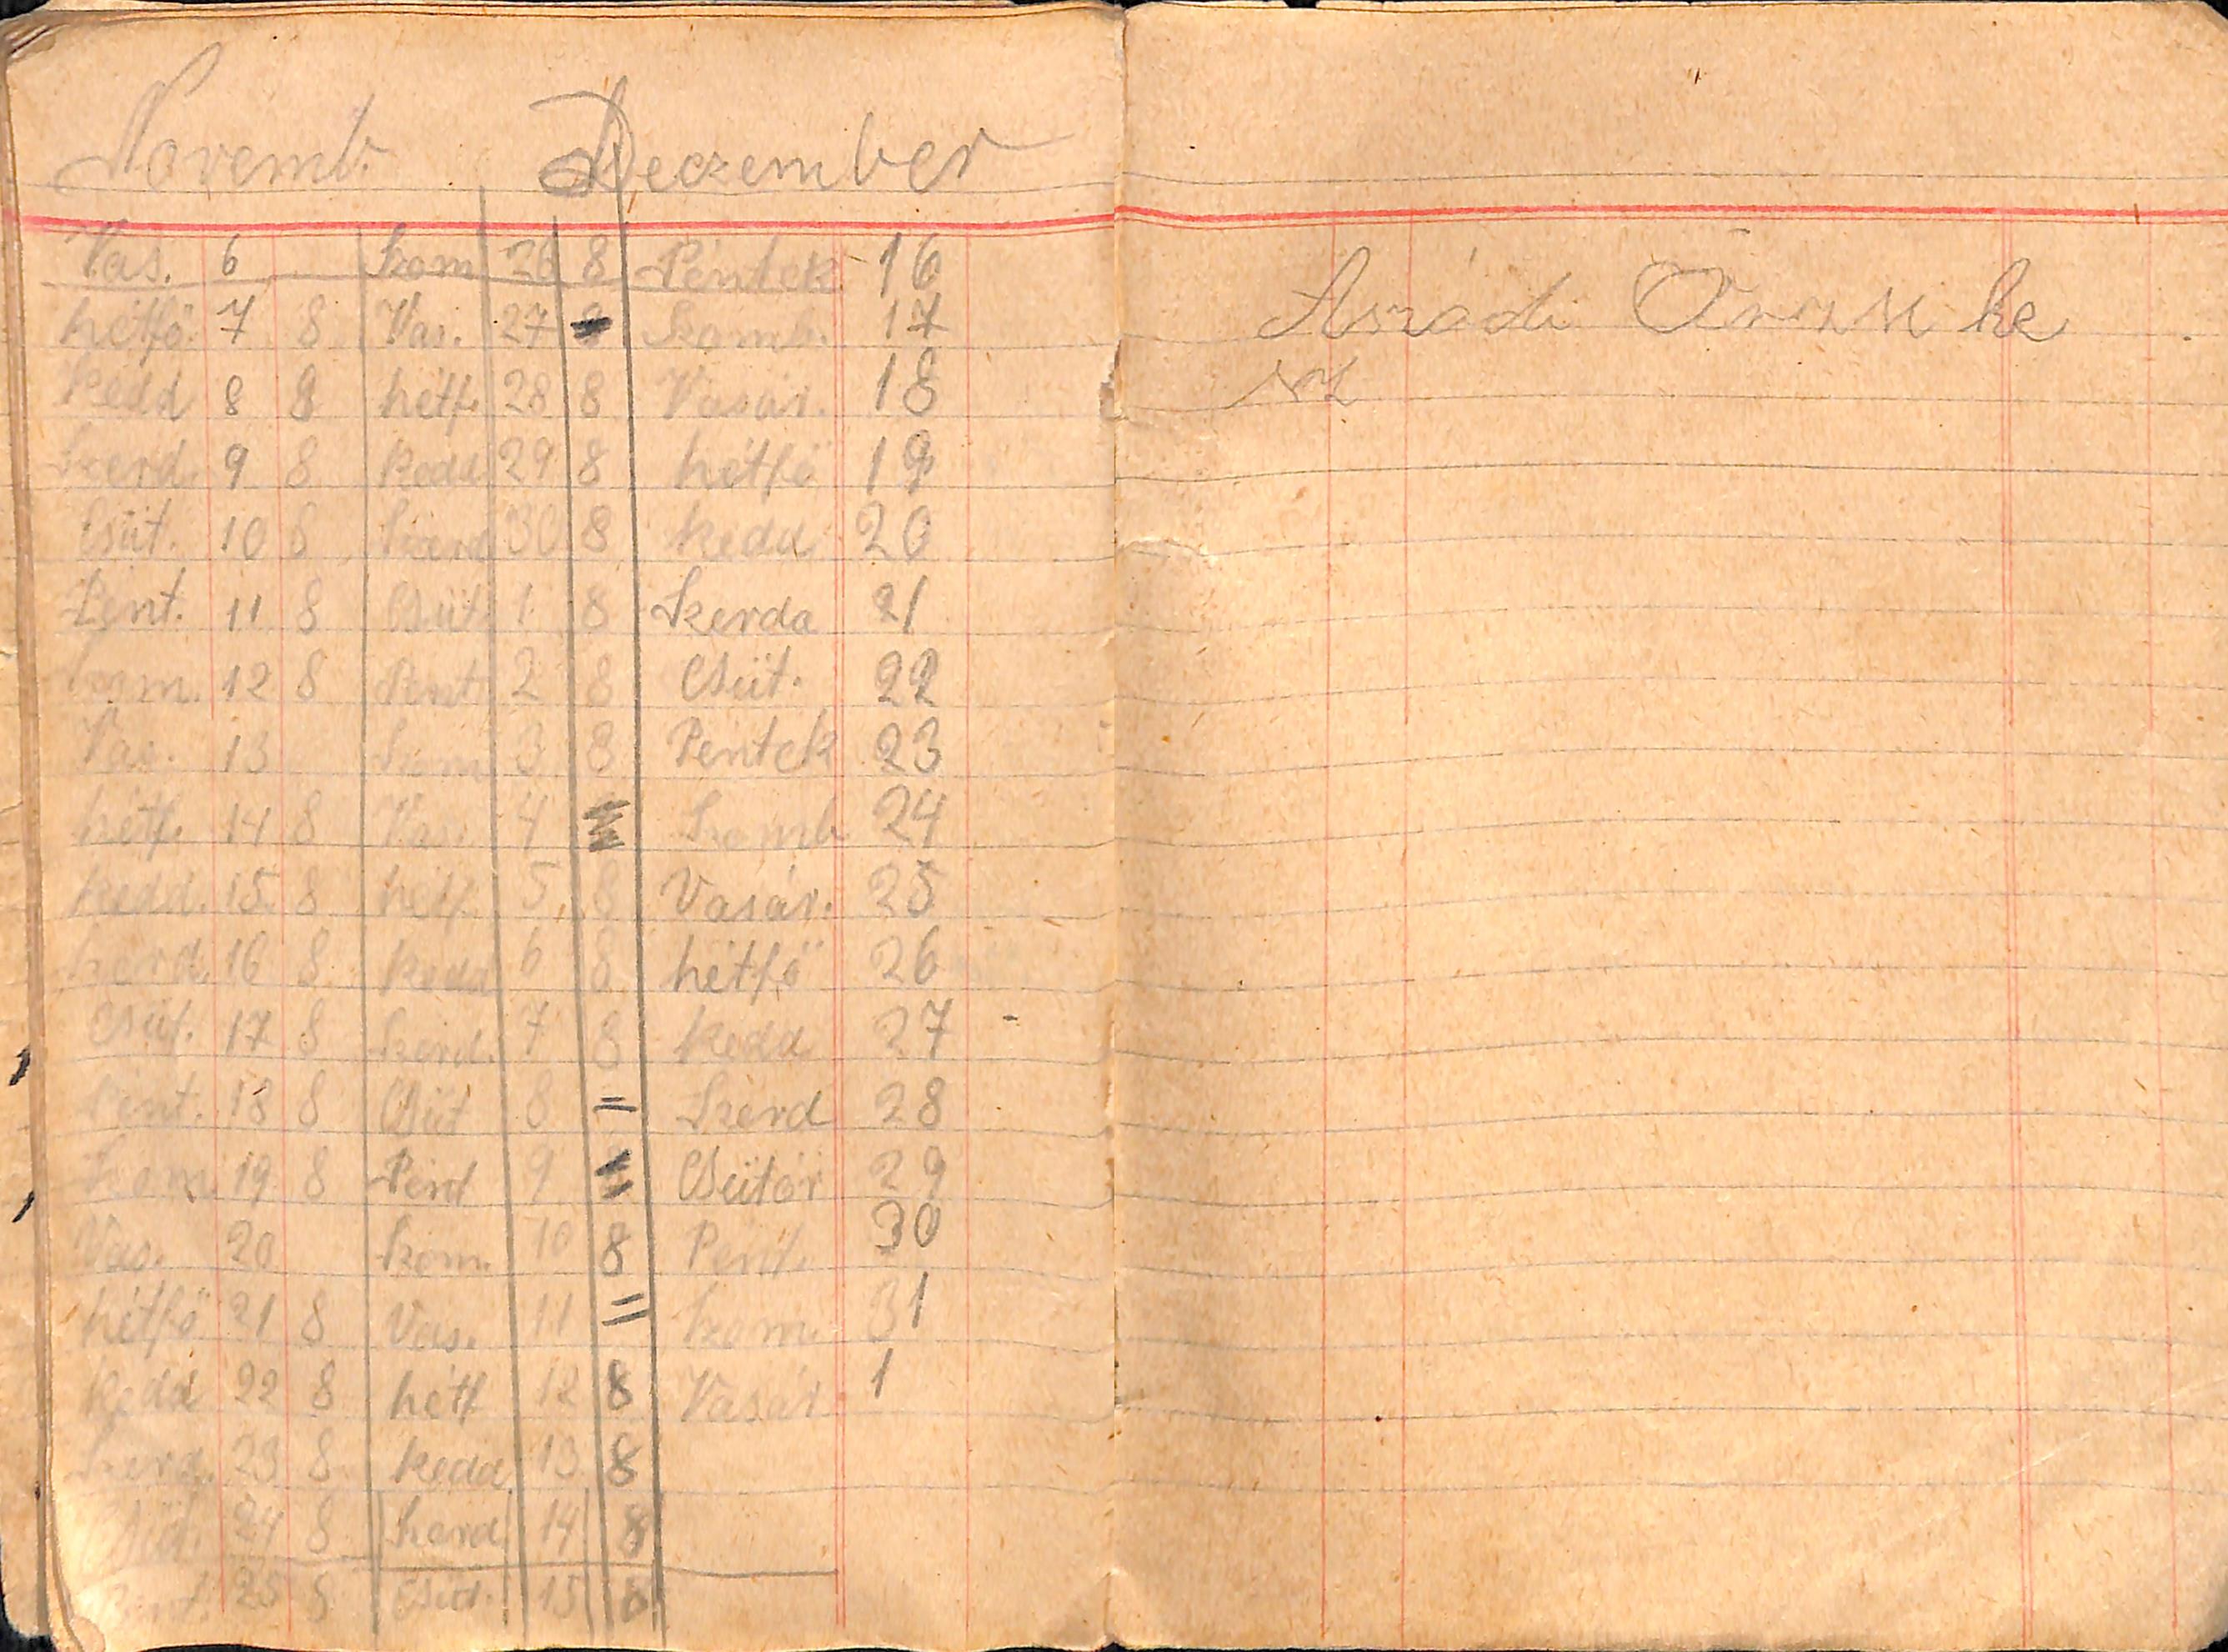 Novemb. Deczember
Vas. 6 Szom 26 8 Péntek 16
hétfő 7 8 Vas. 27 Szomb. 17
Kedd 8 8 hétf. 28 8 Vasár. 18
Szerd. 9 8 Kedd 29 8 hétfő 19
Csüt. 10 8 Szerd 30 8 Kedd 20
Pént. 11 8 Csüt. 1 8 Szerda 21
Szom. 12 8 Pént 2 8 Csüt. 22
Vas. 13 Szom 3 8 Péntek 23
hétf. 14 8 Vas. 4 Szomb 24
Kedd. 15 8 hétf. 5 8 Vasár. 25
Szerd. 16 8 Kedd 6 8 hétfő 26
Csüt. 17 8 Szerd. 7 8 Kedd 27
Pént. 18 8 Csüt 8 = Szerd 28
Szom 19 8 Pént 9 Csütör 29
Vas. 20 Szom. 10 8 Pént. 30
hétfő 21 8 Vas. 11 = Szom. 31
Kedd 22 8 hétf 12 8 Vasár. 1
Szerd. 23 8 Kedd 13 8
Csüt. 24 8 Szerd 14 8
Pént. 25 8 Csüt. 15 8